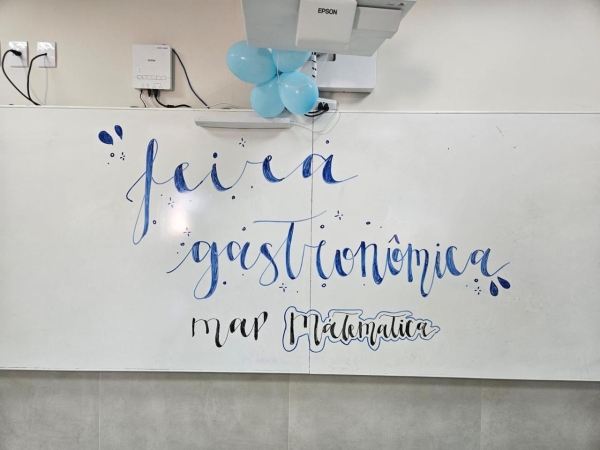 EPSON
feira
gastronômica
map Matematica